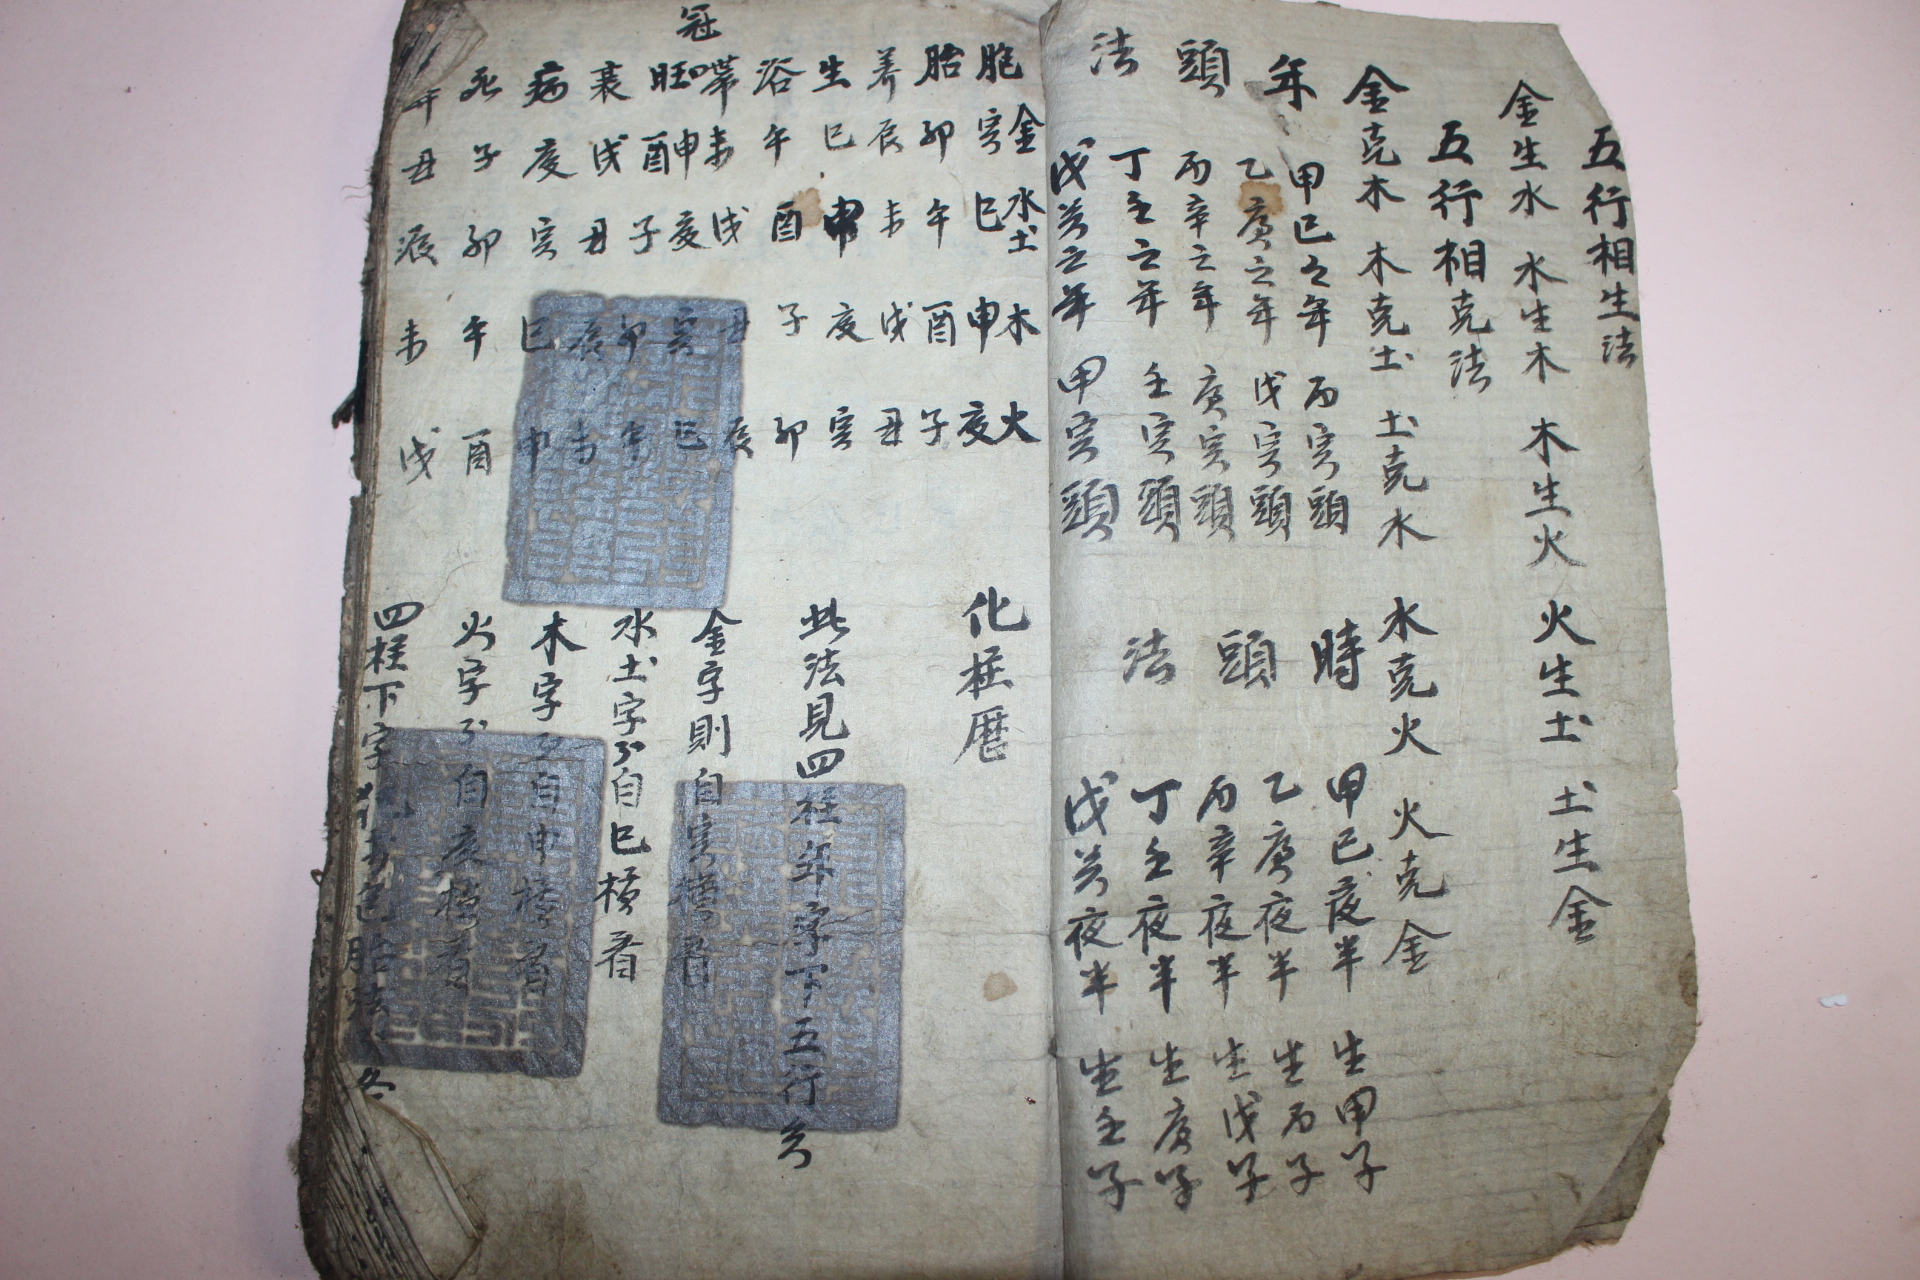 五行相生法
金生水 水生木 木生火 火生土 土生金
五行相克法
金克木 木克土 土克水 水克火 火克金
年頭法
甲己之年 丙寅頭
乙庚之年 戊寅頭
丙辛之年 庚寅頭
丁壬之年 壬寅頭
戊癸之年 甲寅頭
時頭法
甲己夜半 生甲子
乙庚夜半 生丙子
丙辛夜半 生戊子
丁壬夜半 生庚子
戊癸夜半 生壬子
金 水土 木 火
胞 寅 巳 申 亥
胎 卯 午 酉 子
养 辰 未 戌 丑
生 巳 申 亥 寅
浴 午 酉 子 卯
冠帶 未 戌 丑 辰
申 亥 寅 巳
旺 酉 子 卯 午
衰 戌 丑 辰 未
病 亥 寅 巳 申
死 子 卯 午 酉
丑 辰 未 戌
化柱曆
此法見四柱年字下五行
金字則自寅橫看
水土字 自巳橫看
木字 自申橫看
火字 自亥橫看
四柱下字